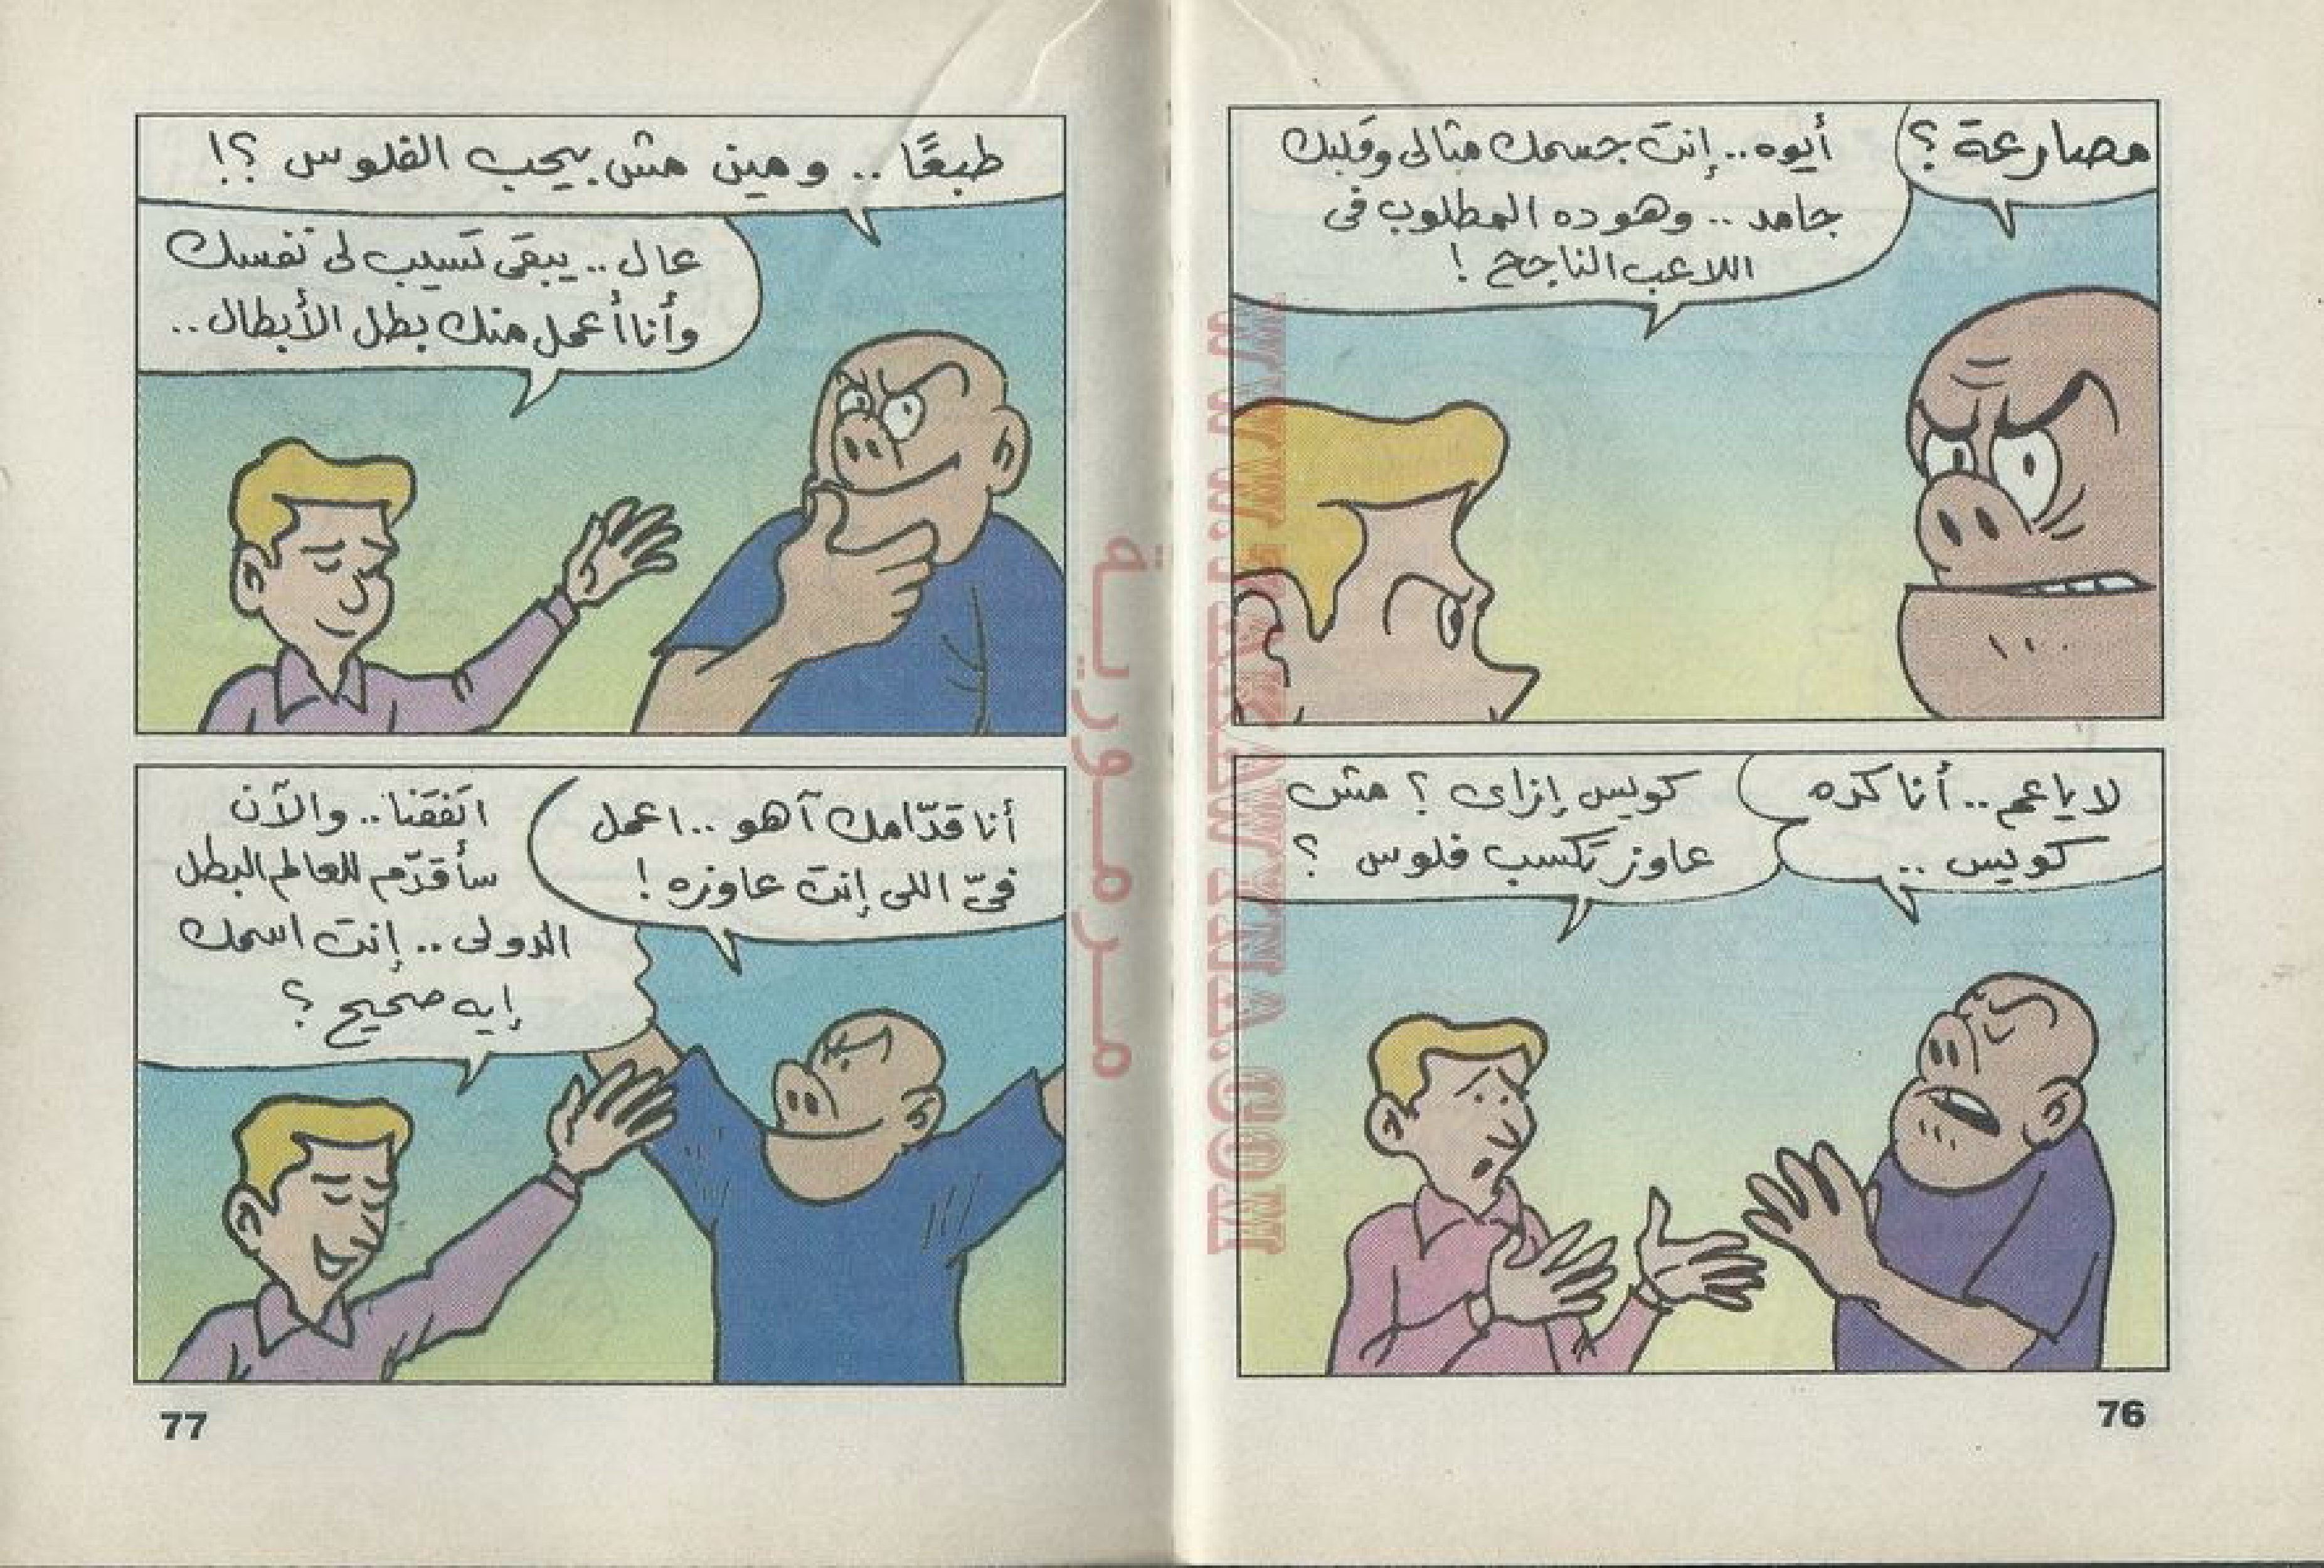 مصارعة ؟
أيوه.. إنتَ جسمك مثالى وقَلبك
جامد .. وهو ده المطلوب فى
اللاعب الناجح !
لا يا عم .. أنا كده
كويس ..
كويس إزاى ؟ مش
عاوز تكسب فلوس ؟
76
طبعًا .. ومين مش بيحب الفلوس ؟!
عال .. يبقَى تسيب لى نفسك
وأنا أعمل منك بطل الأبطال ..
أنا قدّامك آهو .. اعمل
فىّ اللى إنتَ عاوزه !
اتفقنا .. والآن
سأقدّم للعالم البطل
الدولى .. إنت اسمك
إيه صحيح ؟
77